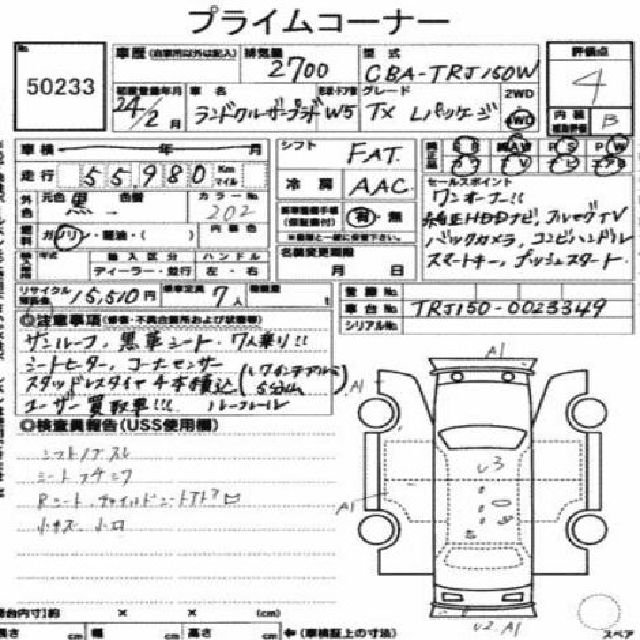 プライムコーナー
No. 50233
車歴 (自家用以外は記入) 排気量 2700 型式 CBA-TRJ150W 評価点 4
初度登録年月 24/2月 車名 ランドクルーザープラド W5 グレード TX Lパッケージ 2WD 4WD 内装 B
車検 年 月
走行 55,980 Km マイル
シフト FAT
冷房 AAC
外色 元色 黒 色替 カラーNo. 202
燃料 ガソリン・軽油・( ) 内装色
輸入区分 ハンドル
ディーラー・並行 左・右
有・無
名義変更期限
月 日
セールスポイント
ワンオーナー!!
純正HDDナビ、フルセグTV
バックカメラ、コンビハンドル
スマートキー、プッシュスタート
リサイクル預託金 15,510円 乗車定員 7人 積載量 t
登録No.
車台No. TRJ150-0023349
シリアルNo.
◎注意事項
サンルーフ、黒革シート、7人乗り!!
シートヒーター、コーナーセンサー
スタッドレスタイヤ4本積込
ユーザー買取車!!! ルーフレール
◎検査員報告(USS使用欄)
シフトノブスレ
Rシート
小キズ、小凹
A1
A1
A1
U3
U2 A1
(cm)
長さ cm 幅 cm 高さ cm ←(車検証上の寸法)
スペア